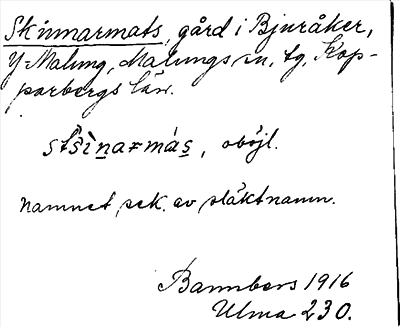 Skinnarmats, gård i Bjuråker,
Y. Malung, Malungs sn, tg, Kop-
parbergs län.
stši̍narmás, oböjl.
namnet, sek. av släktnamn.
Bannbers 1916
Ulma 230.